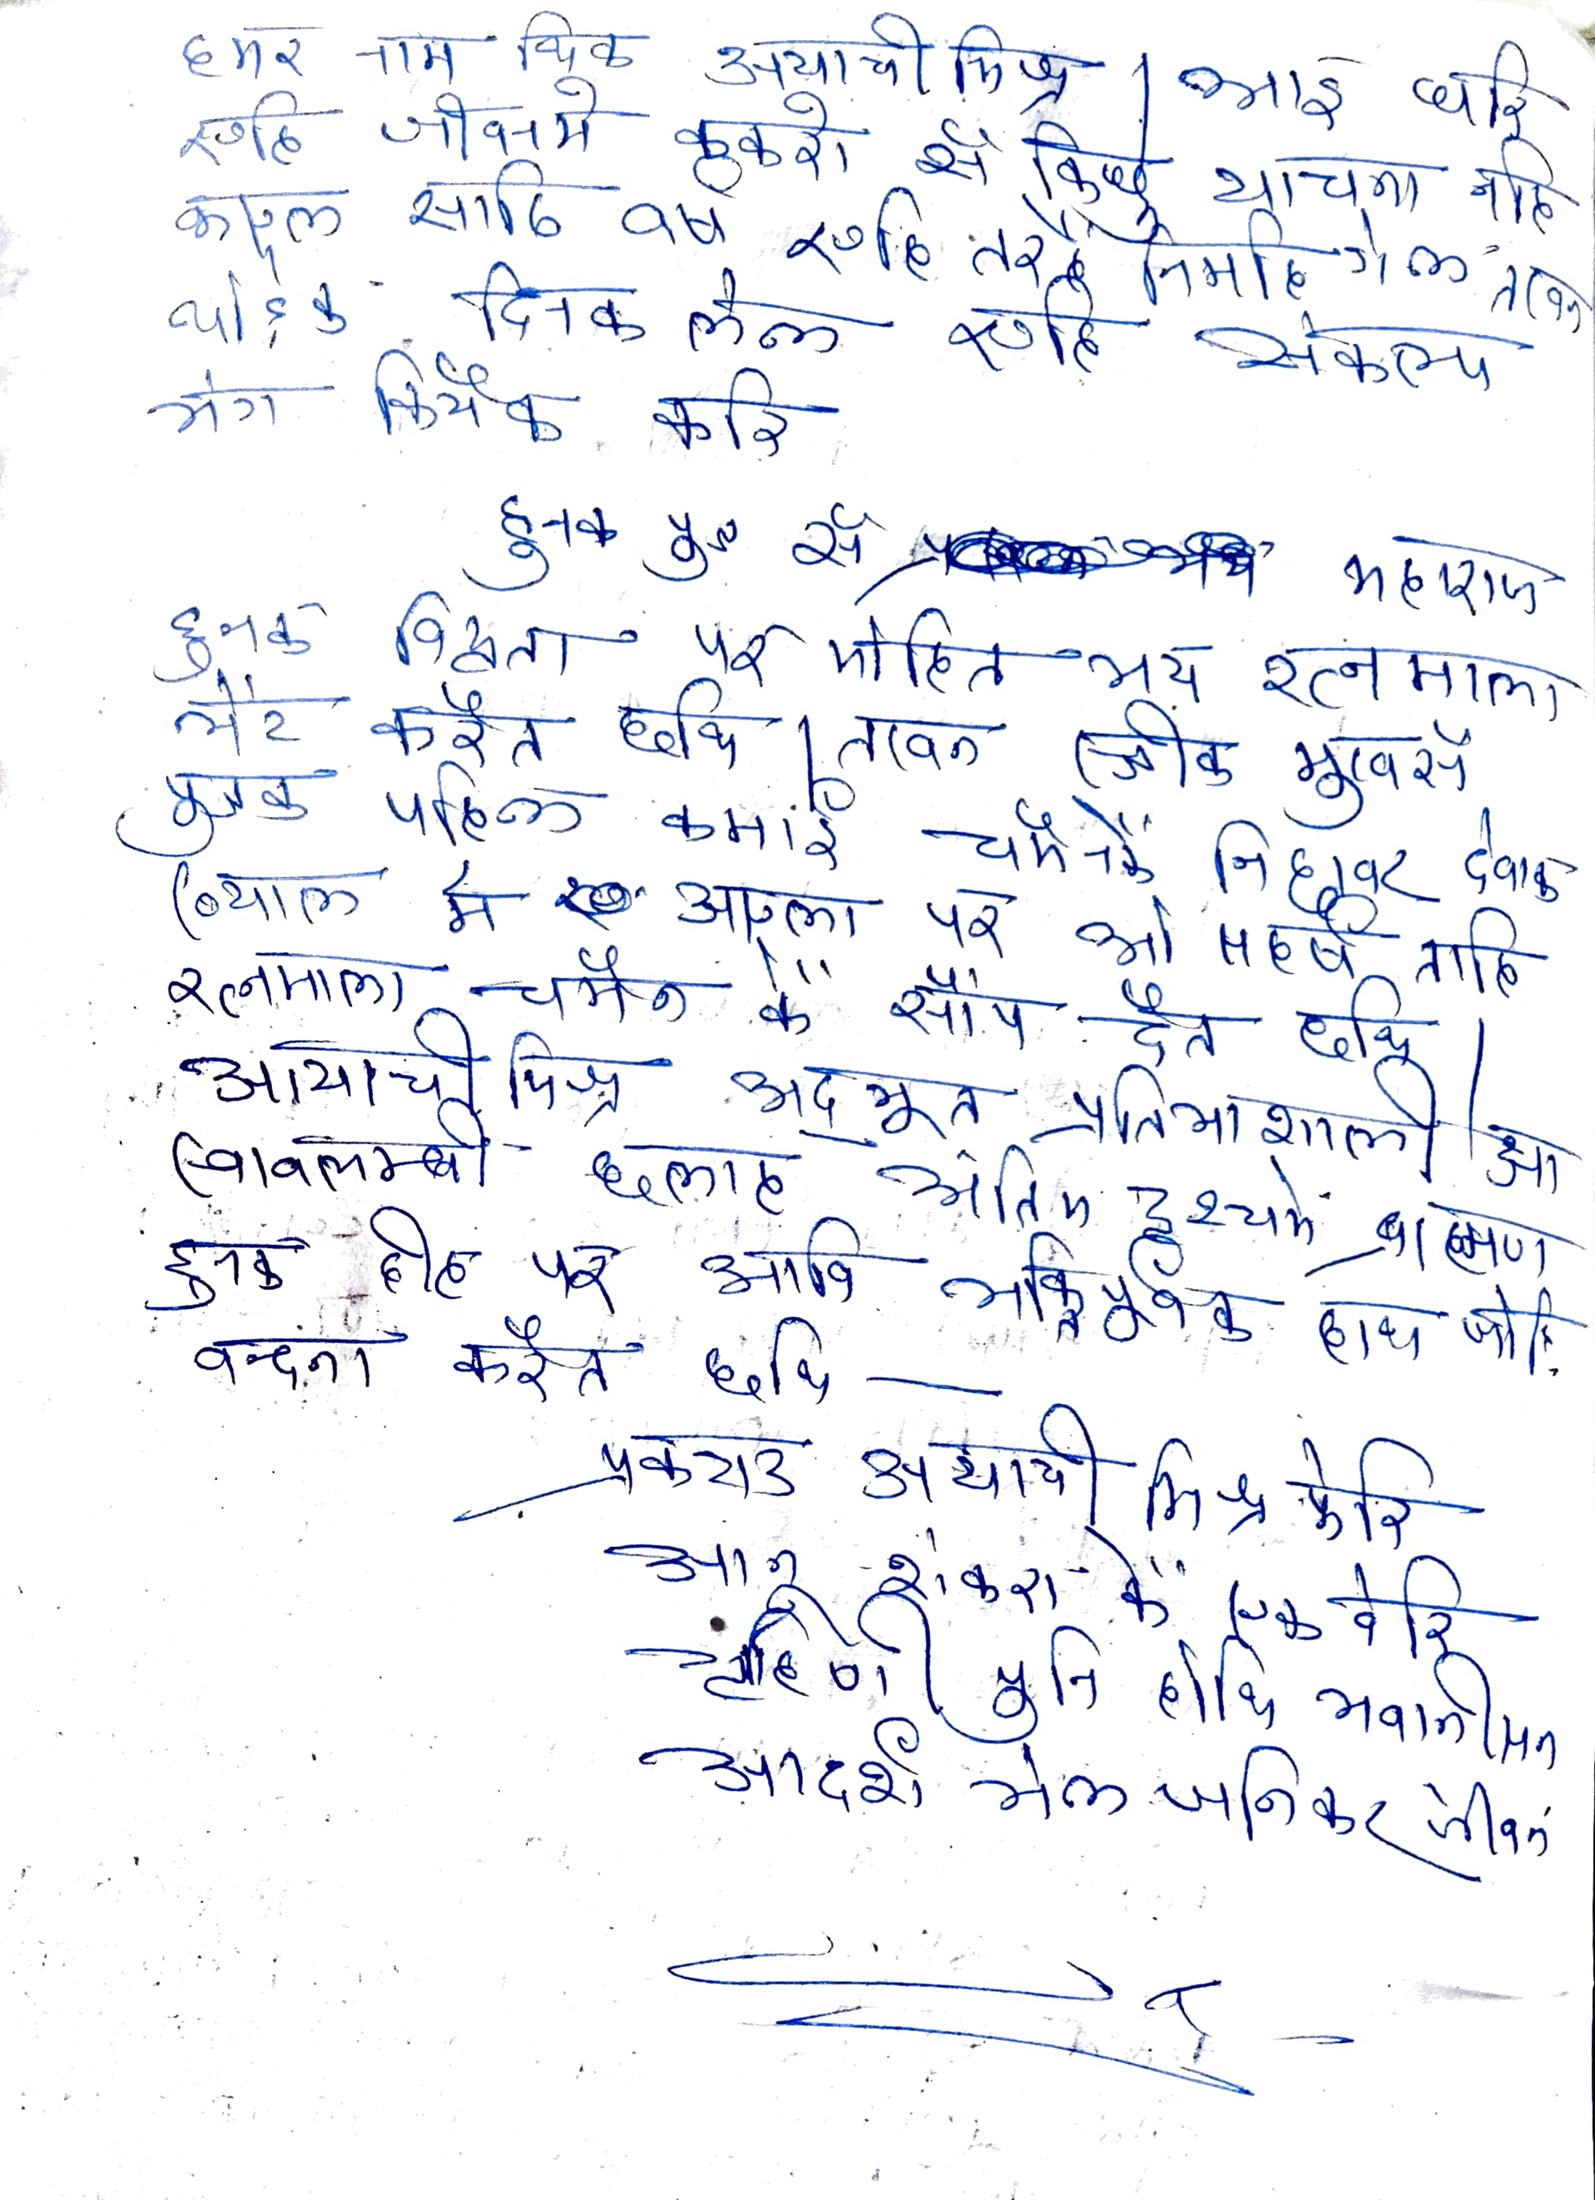 हमर नाम थिक अयाची मिश्र । आइ धरि
एहि जीवनमे ककरो सँ किछु याचना नहि
कएल साठि वर्ष एहि तरहेँ निमहि गेल तखन
थोड़ेक दिनक लेल एहि संकल्प
भंग कियैक करि
हुनक पुत्र सँ महाराज
हुनक विद्वता पर मोहित भय रत्नमाला
भेंट करैत छथि । तखन स्त्रीक मुखसँ
पुत्रक पहिल कमाई चमैनकेँ निछावर देबाक
ख्याल मे अएला पर ओ सहर्ष ताहि
रत्नमाला चमैन केँ सौंप दैत छथि ।
अयाची मिश्र अद्भूत प्रतिभाशाली आ
स्वावलम्बी छलाह अंतिम दृश्यमे ब्राह्मण
हुनक डीह पर आबि भक्तिपूर्वक हाथ जोड़ि
वन्दना करैत छथि —
प्रकटाउ अयाची मिश्र फेरि
आनू शंकरा केँ एक बेरि
गृहिणी पुनि होथि भवानी सन
आदर्श भेल जनिकर जीवन